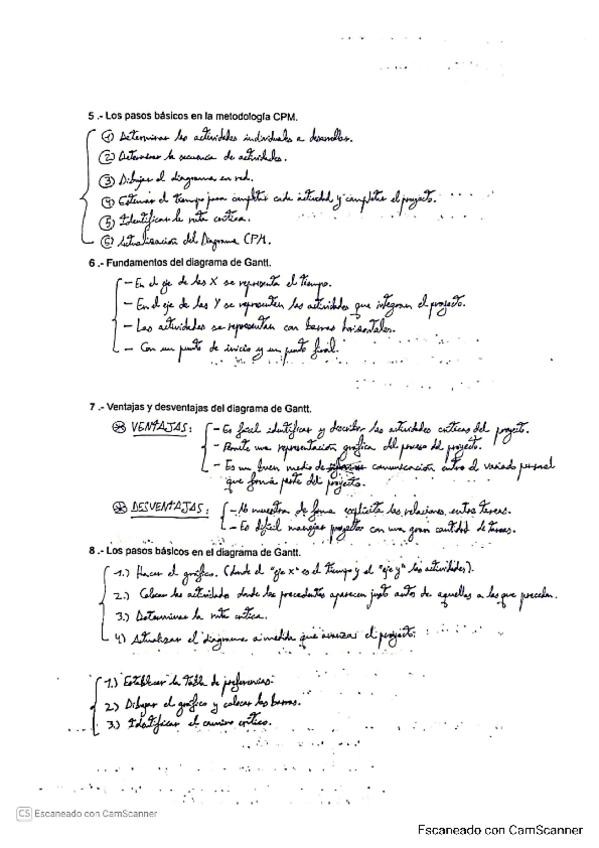 5 .- Los pasos básicos en la metodología CPM.
① Determinar las actividades individuales a desarrollar.
② Determinar la secuencia de actividades.
③ Dibujar el diagrama en red.
④ Estimar el tiempo para completar cada actividad y completar el proyecto.
⑤ Identificar la ruta crítica.
⑥ Actualización del Diagrama CPM.
6 .- Fundamentos del diagrama de Gantt.
- En el eje de las X se representa el tiempo.
- En el eje de las Y se representan las actividades que integran el proyecto.
- Las actividades se representan con barras horizontales.
- Con un punto de inicio y un punto final.
7 .- Ventajas y desventajas del diagrama de Gantt.
VENTAJAS: - Es fácil identificar y describir las actividades críticas del proyecto.
- Permite una representación gráfica del proceso del proyecto.
- Es un buen medio de comunicación entre el variado personal
que forma parte del proyecto.
DESVENTAJAS: - No muestran de forma explícita las relaciones entre tareas.
- Es difícil manejar proyectos con una gran cantidad de tareas.
8 .- Los pasos básicos en el diagrama de Gantt.
1.) Hacer el gráfico. (donde el "eje x" es el tiempo y el "eje y" las actividades).
2.) Colocar las actividades donde las precedentes aparecen justo antes de aquellas a las que preceden.
3.) Determinar la ruta crítica.
4) Actualizar el diagrama a medida que avanza el proyecto.
1.) Establecer la tabla de preferencias.
2.) Dibujar el gráfico y colocar las barras.
3.) Identificar el camino crítico.
CS Escaneado con CamScanner
Escaneado con CamScanner